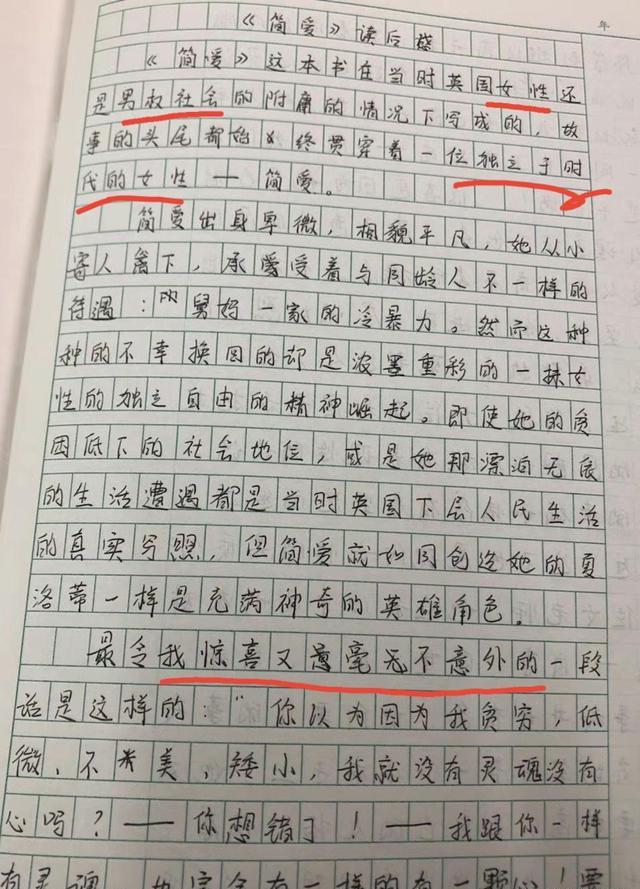 年
《简爱》读后感
《简爱》这本书在当时英国女性还
是男权社会的附庸的情况下写成的，故
事的头尾都始终贯穿着一位独立于时
代的女性——简爱。
简爱出身卑微，相貌平凡，她从小
寄人篱下，承受着与同龄人不一样的
待遇：舅妈一家的冷暴力。然而这种
种的不幸换回的却是浓墨重彩的一抹女
性的独立自由的精神崛起。即使她的贫
困低下的社会地位，或是她那漂泊无依
的生活遭遇都是当时英国下层人民生活
的真实写照，但简爱就如同创造她的夏
洛蒂一样是充满神奇的英雄角色。
最令我惊喜又毫无不意外的一段
话是这样的：“你以为因为我贫穷，低
微、不美，矮小，我就没有灵魂没有
心吗？——你想错了！——我跟你一样
有灵魂，也完全有一样的有一颗心！要